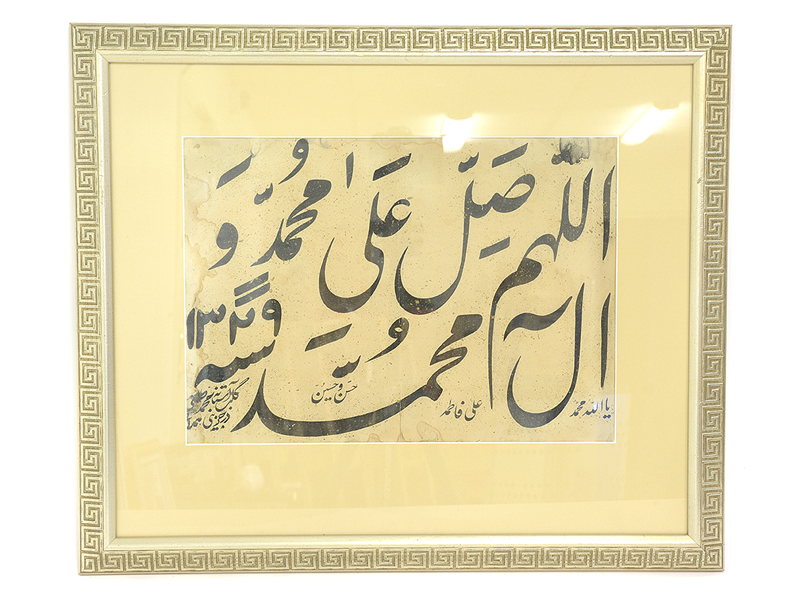 اللهم صَلِّ عَلیٰ محُمدٍّ وَ
الِ محمدٍّ سنه ١٣٢٩
یا الله محمد علی فاطمه حسن و حسین